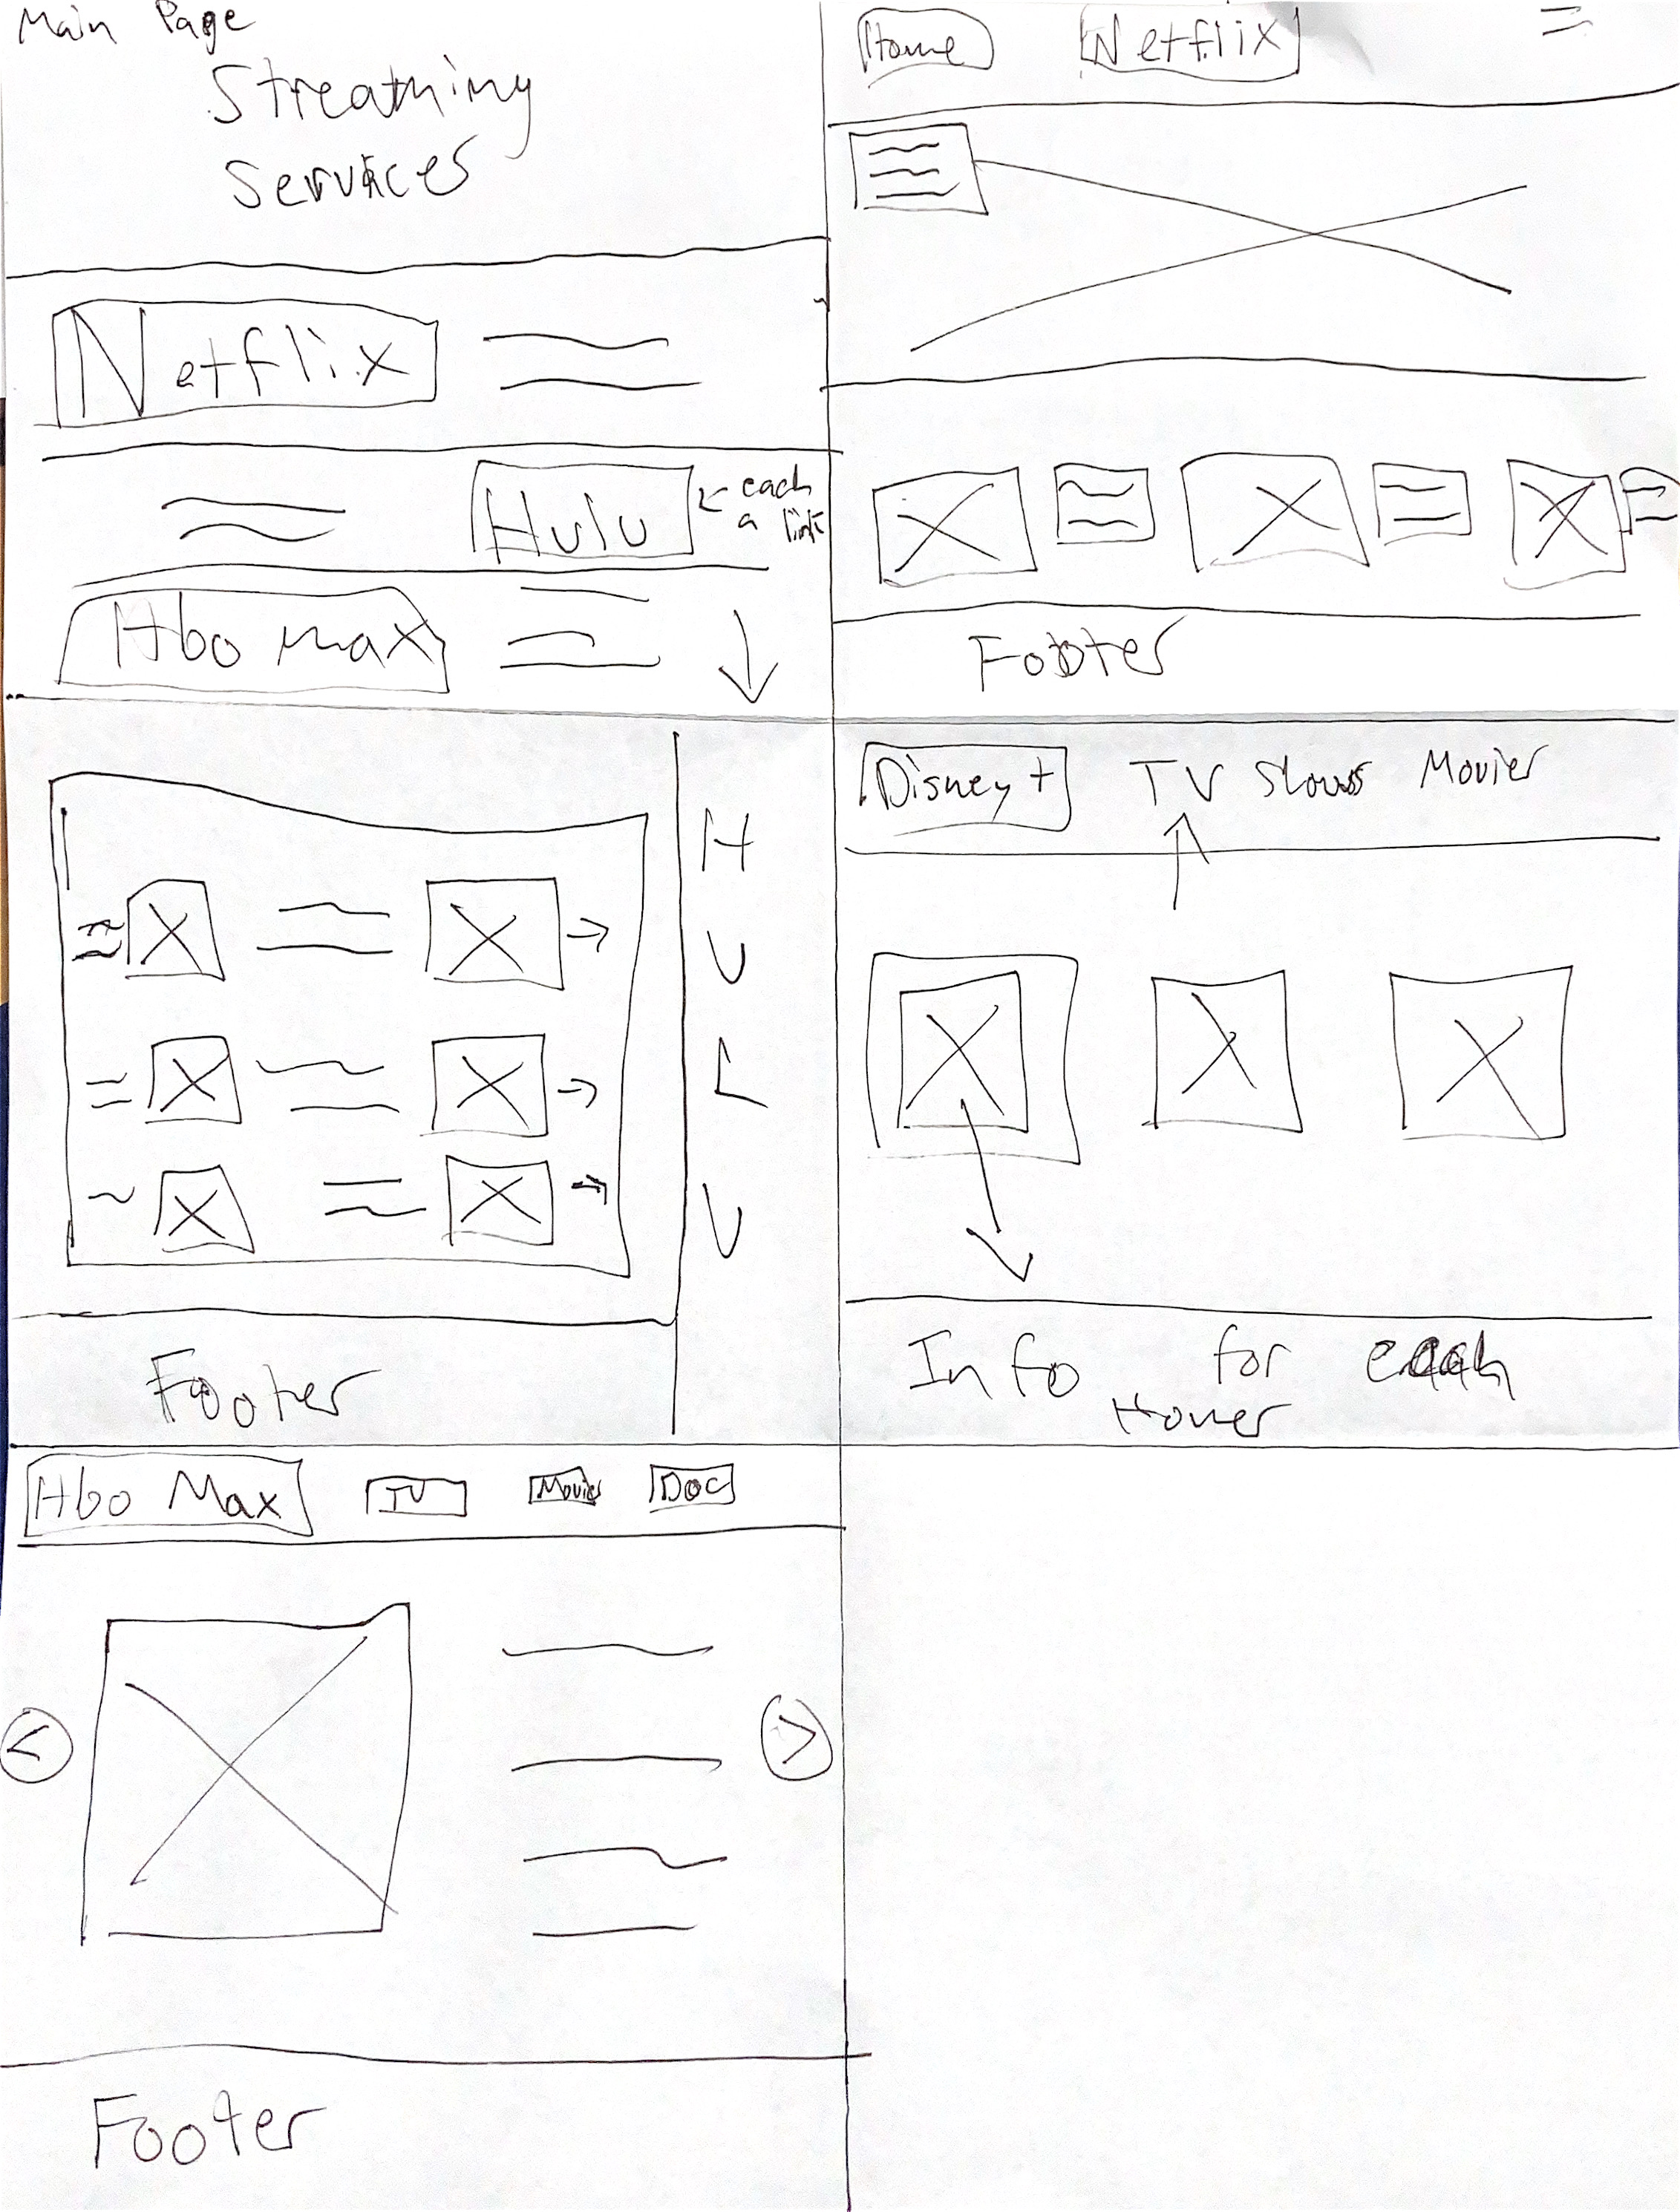 Main Page
Streaming
Services
Netflix
Hulu
← each
a link
Hbo Max
Home Netflix
Footer
H
U
L
U
Footer
Disney+ TV Shows Movies
Info for each
Hover
Hbo Max TV Movies Doc
Footer